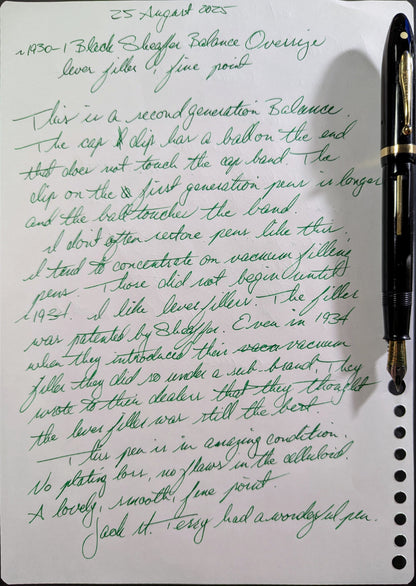 25 August 2025
~1930-1 Black Sheaffer Balance Oversize
lever filler, fine point
This is a second generation Balance.
The cap clip has a ball on the end
that does not touch the cap band. The
clip on the first generation pens is longer
and the ball touches the band.
I don't often restore pens like this.
I tend to concentrate on vacuum filling
pens. Those did not begin until
~1934. I like lever fillers. The filler
was patented by Sheaffer. Even in 1934
when they introduced their vacuum
filler they did so under a sub-brand. They
wrote to their dealers that they thought
the lever filler was still the best.
This pen is in amazing condition.
No plating loss, no flaws in the celluloid.
A lovely, smooth, fine point
Jack H. Terry had a wonderful pen.